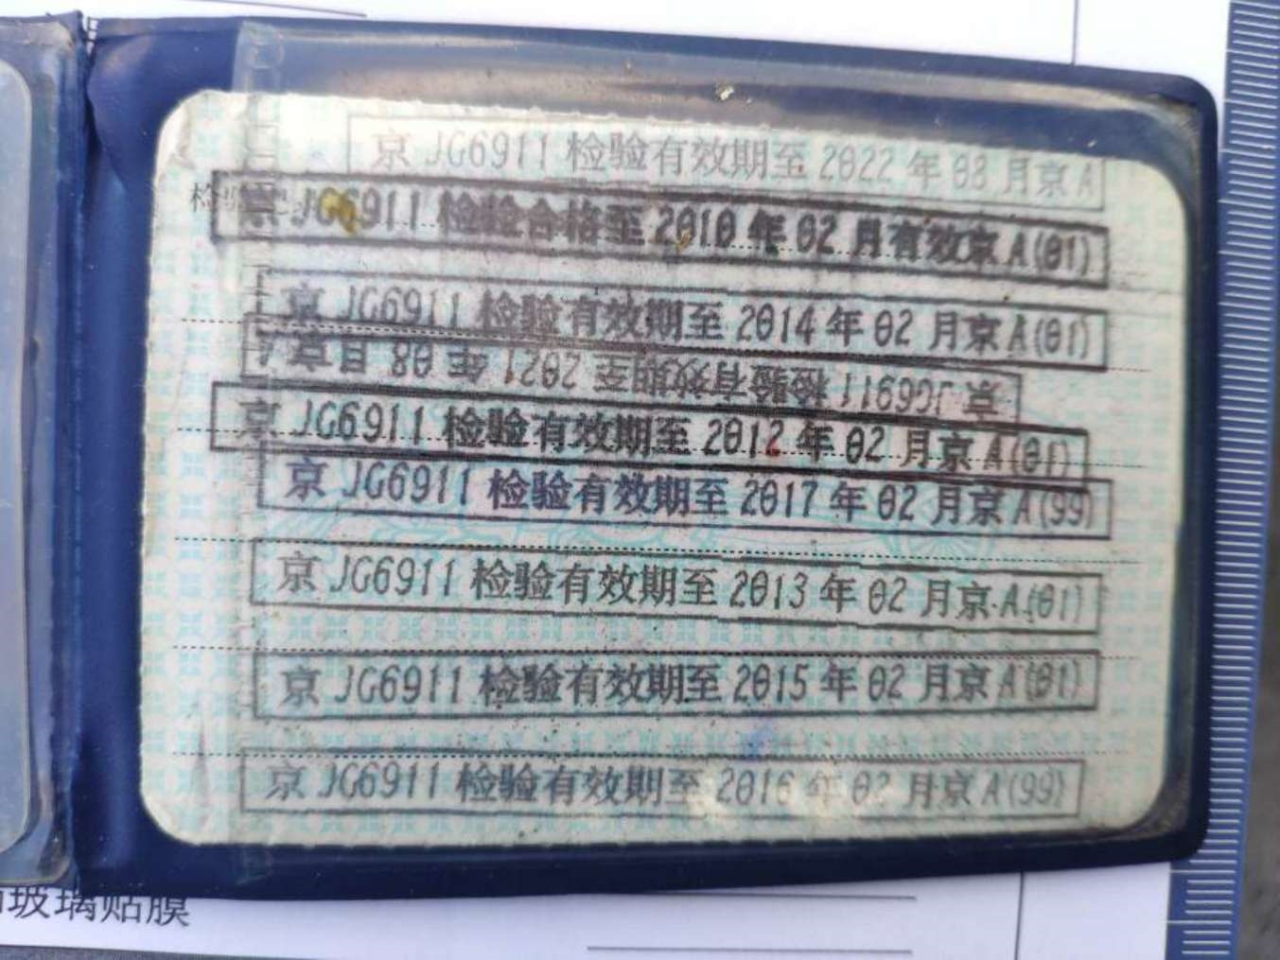 京 JG6911 检验有效期至 2022 年 08 月京 A
检验
京 JG6911 检验合格至 2010 年 02 月有效京 A(01)
京 JG6911 检验有效期至 2014 年 02 月京 A(01)
京 JG6911 检验有效期至 2021 年 08 月京
京 JG6911 检验有效期至 2012 年 02 月京 A(01)
京 JG6911 检验有效期至 2017 年 02 月京 A(99)
京 JG6911 检验有效期至 2013 年 02 月京 A(01)
京 JG6911 检验有效期至 2015 年 02 月京 A(01)
京 JG6911 检验有效期至 2016 年 02 月京 A(99)
玻璃贴膜